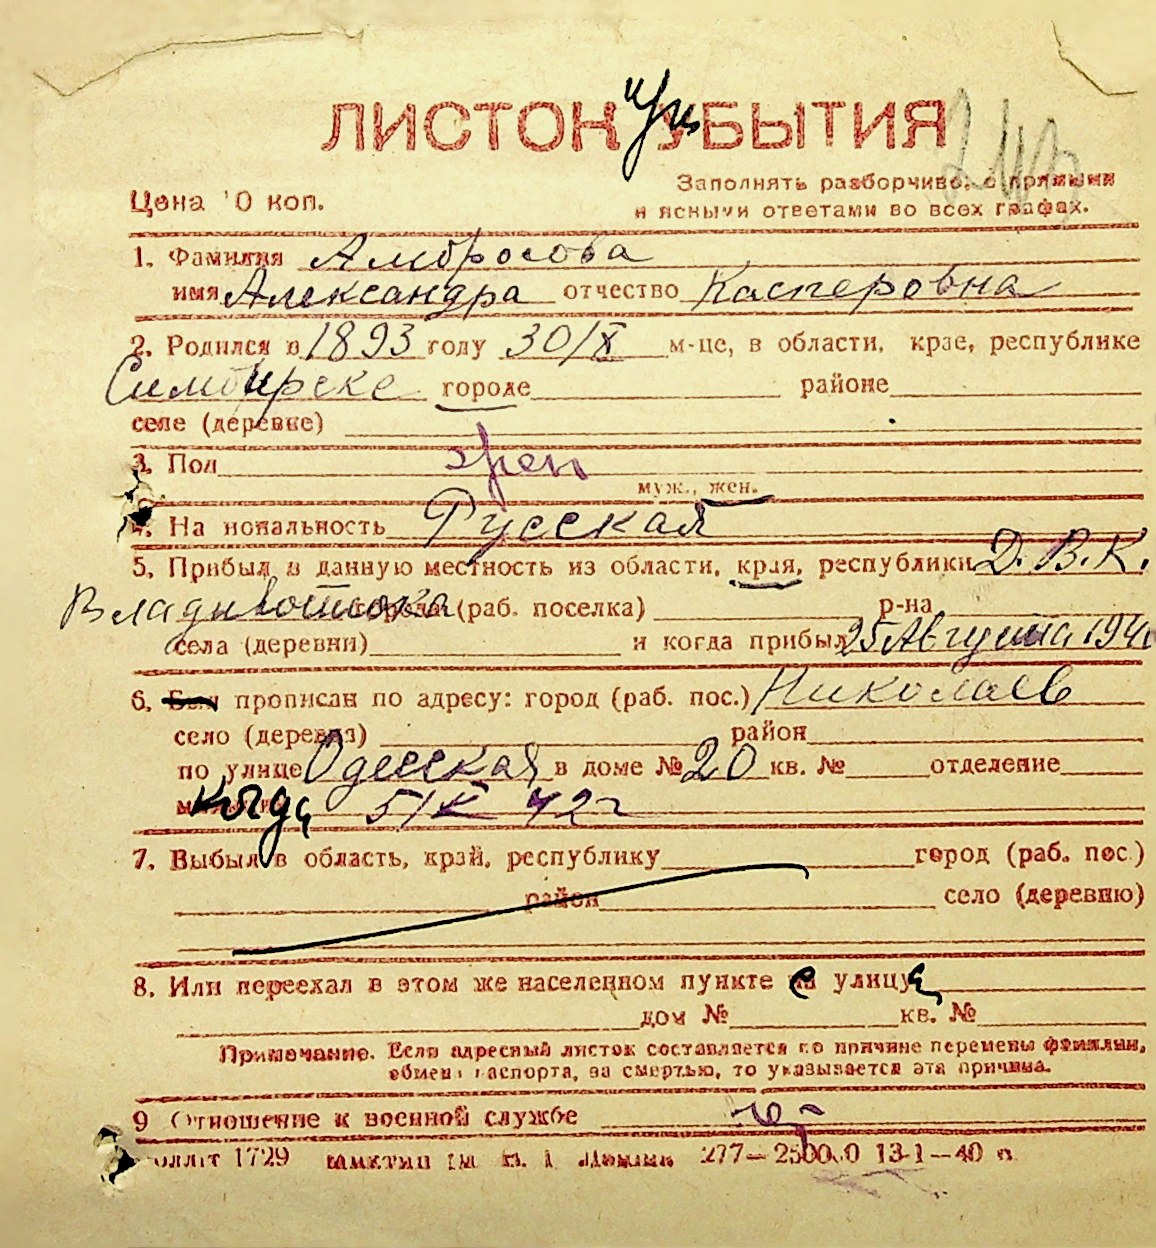 ЛИСТОК УБЫТИЯ
Цена 10 коп.
Заполнять разборчиво, с прямыми
и ясными ответами во всех графах.
1. Фамилия Амбросова
имя Александра отчество Касперовна
2. Родился в 1893 году 30/X м-це, в области, крае, республике
Симбирске городе районе
селе (деревне)
3. Пол жен
муж., жен.
4. Национальность Русская
5. Прибыл в данную местность из области, края, республики Д.В.К.
Владивостока города (раб. поселка) р-на
села (деревни) и когда прибыл 25 Августа 194
6. Был прописан по адресу: город (раб. пос.) Николаев
село (деревня) район
по улице Одесская в доме № 20 кв. № отделение
5/IX 42 г
7. Выбыл в область, край, республику город (раб. пос.)
район село (деревню)
8. Или переехал в этом же населенном пункте с улицы
дом № кв. №
Примечание. Если адресный листок составляется по причине перемены фамилии,
обмена паспорта, за смертью, то указывается эта причина.
9 Отношение к военной службе
1729 277—25000.0 13-1—40 г.